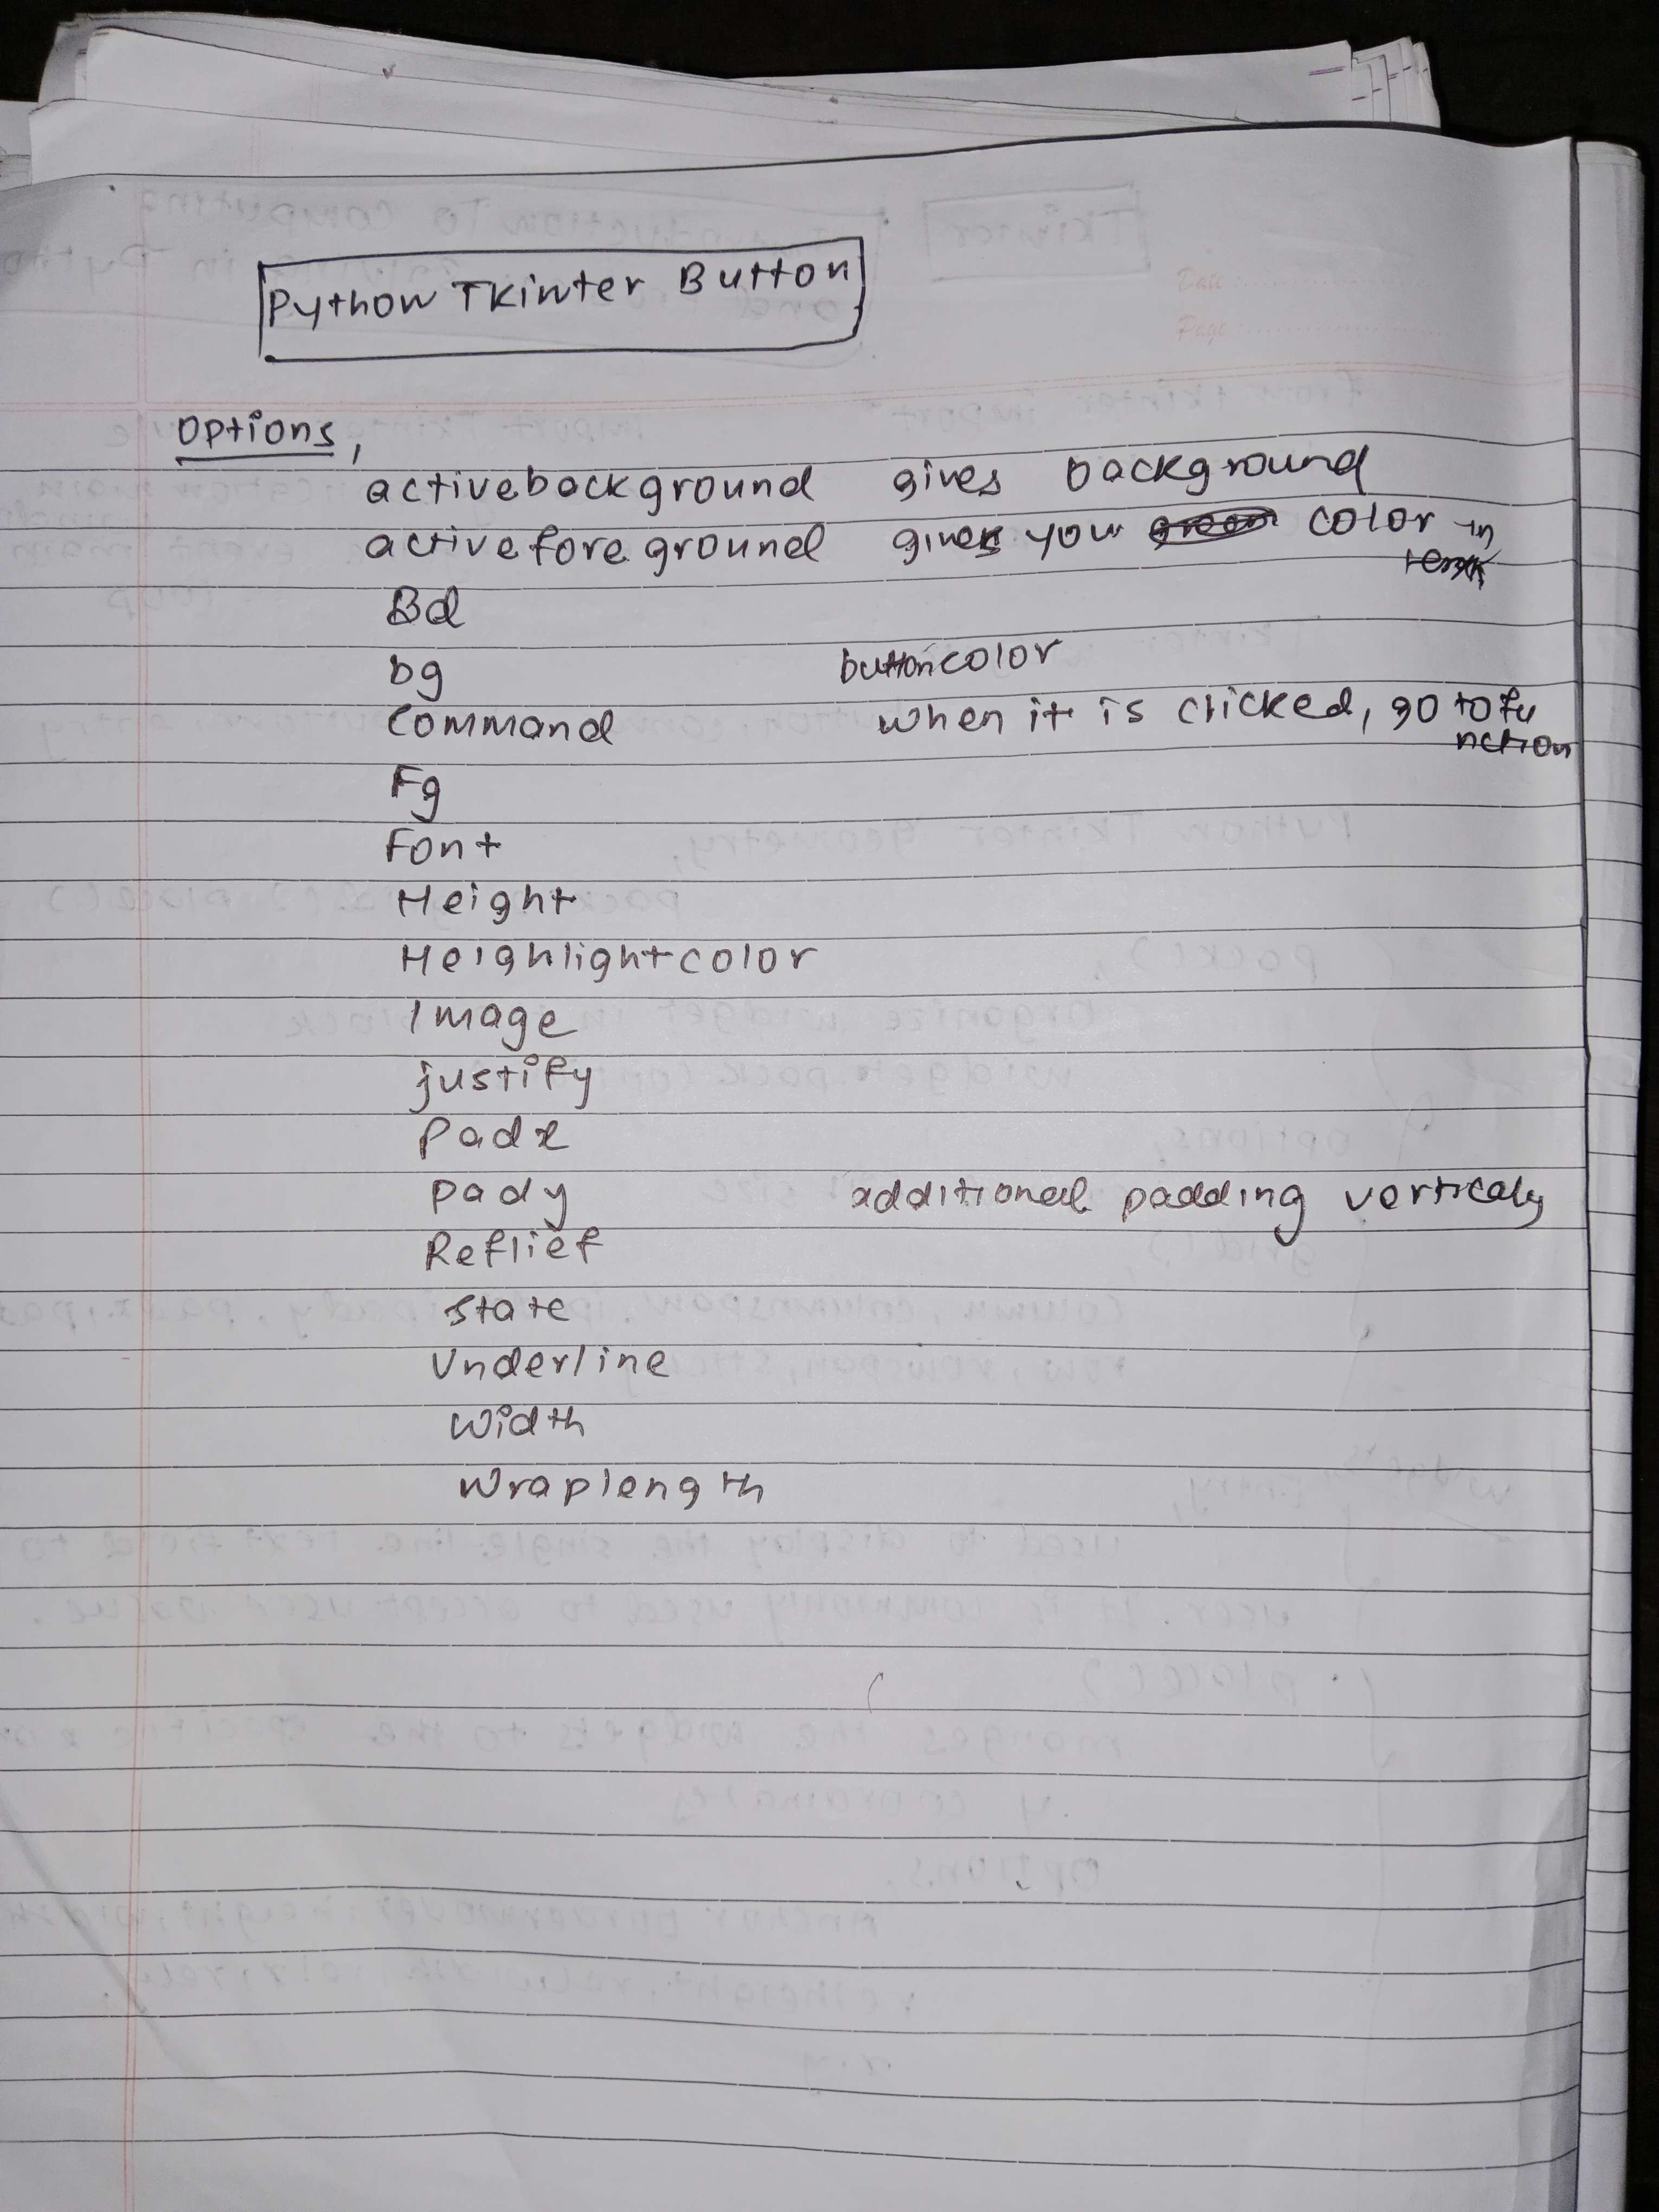 Python Tkinter Button
Options,
activebackground gives background
activeforeground gives you color in
text
Bd
bg button color
Command when it is clicked, go to fu
nction
Fg
Font
Height
Heighlightcolor
Image
justify
Padx
Pady additional padding verticaly
Reflief
State
Underline
Width
Wraplength
Date
Page